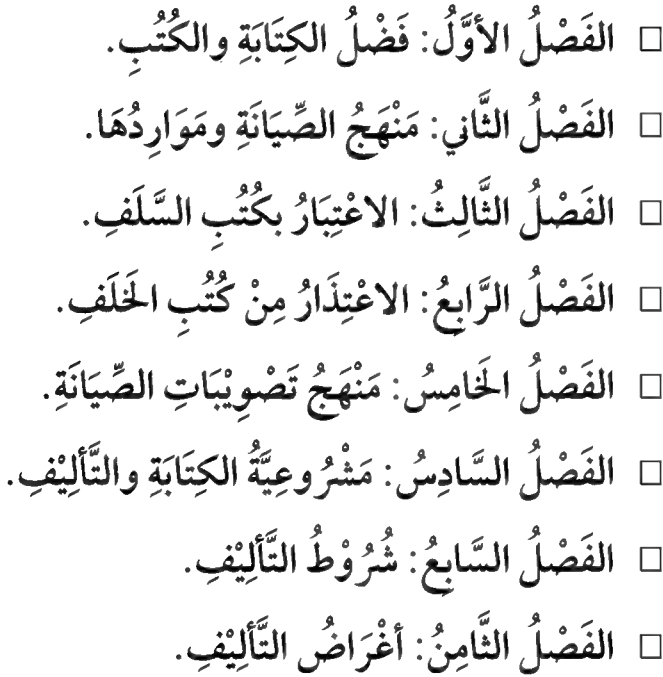 □ الفَصْلُ الأوَّلُ: فَضْلُ الكِتَابَةِ والكُتُبِ.
□ الفَصْلُ الثَّاني: مَنْهَجُ الصِّيَانَةِ ومَوَارِدُهَا.
□ الفَصْلُ الثَّالِثُ: الاعْتِبَارُ بكُتُبِ السَّلَفِ.
□ الفَصْلُ الرَّابِعُ: الاعْتِذَارُ مِنْ كُتُبِ الخَلَفِ.
□ الفَصْلُ الخَامِسُ: مَنْهَجُ تَصْوِيْبَاتِ الصِّيَانَةِ.
□ الفَصْلُ السَّادِسُ: مَشْرُوعِيَّةُ الكِتَابَةِ والتَّألِيْفِ.
□ الفَصْلُ السَّابِعُ: شُرُوْطُ التَّألِيْفِ.
□ الفَصْلُ الثَّامِنُ: أغْرَاضُ التَّألِيْفِ.